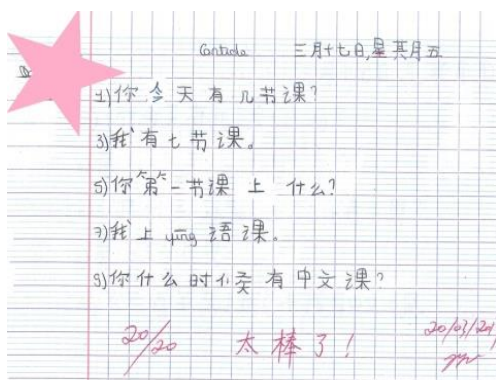 Candida 三月十七日,星其月五
1)你今天有几节课?
3)我有七节课。
5)你第一节课上什么?
7)我上yīng语课。
9)你什么时候有中文课?
20/20 太棒了! 20/03/201